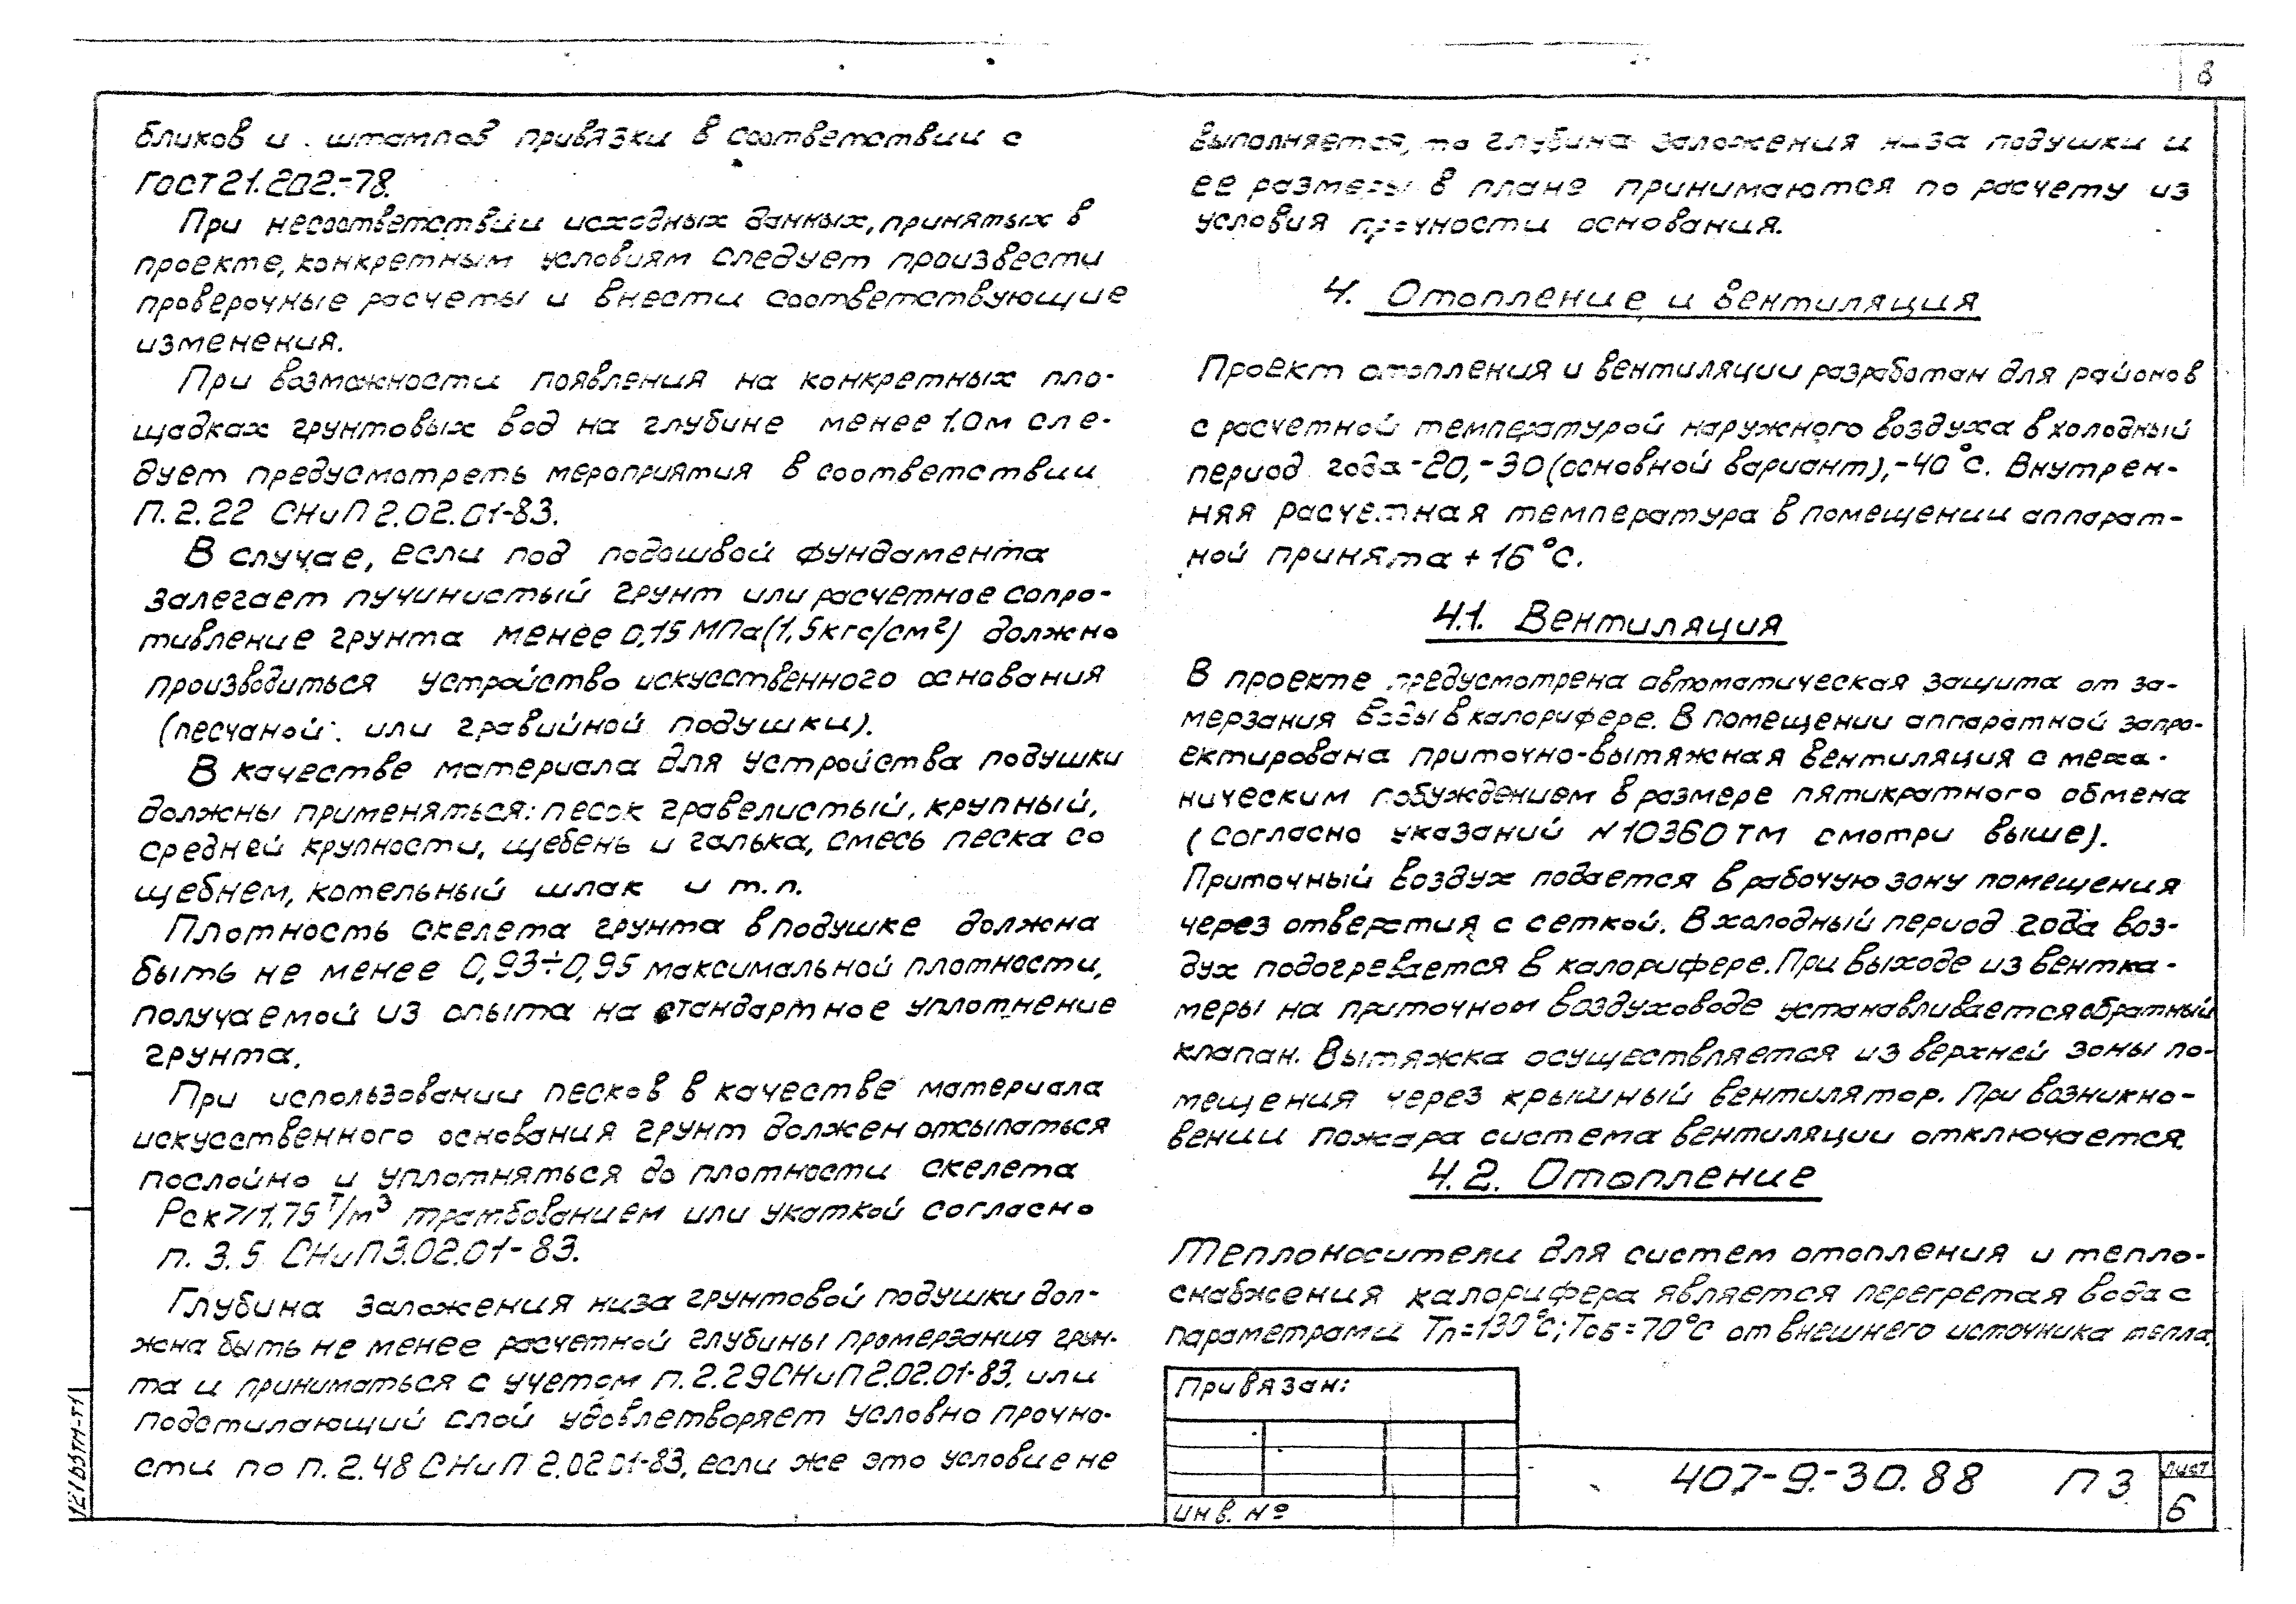 8
бликов и штампов привязки в соответствии с
ГОСТ 21.202.-78.
При несоответствии исходных данных, принятых в
проекте, конкретным условиям следует произвести
проверочные расчеты и внести соответствующие
изменения.
При возможности появления на конкретных пло-
щадках грунтовых вод на глубине менее 1.0м сле-
дует предусмотреть мероприятия в соответствии
П. 2.22 СНиП 2.02.01-83.
В случае, если под подошвой фундамента
залегает пучинистый грунт или расчетное сопро-
тивление грунта менее 0,15 МПа (1,5кгс/см²) должно
производиться устройство искусственного основания
(песчаной или гравийной подушки).
В качестве материала для устройства подушки
должны применяться: песок гравелистый, крупный,
средней крупности, щебень и галька, смесь песка со
щебнем, котельный шлак и т.п.
Плотность скелета грунта в подушке должна
быть не менее 0,93÷0,95 максимальной плотности,
получаемой из опыта на стандартное уплотнение
грунта.
При использовании песков в качестве материала
искусственного основания грунт должен отсыпаться
послойно и уплотняться до плотности скелета
Рск ⩾ 1,75 т/м³ трамбованием или укаткой согласно
п. 3.5 СНиП 3.02.01-83.
Глубина заложения низа грунтовой подушки дол-
жна быть не менее расчетной глубины промерзания грун-
та и приниматься с учетом п. 2.29 СНиП 2.02.01-83, или
подстилающий слой удовлетворяет условно прочно-
сти по п. 2.48 СНиП 2.02.01-83, если же это условие не
выполняется, то глубина заложения низа подушки и
ее размеры в плане принимаются по расчету из
условия прочности основания.
4. Отопление и вентиляция
Проект отопления и вентиляции разработан для районов
с расчетной температурой наружного воздуха в холодный
период года -20, -30 (основной вариант), -40°С. Внутрен-
няя расчетная температура в помещении аппарат-
ной принята +16°С.
4.1. Вентиляция
В проекте предусмотрена автоматическая защита от за-
мерзания воды в калорифере. В помещении аппаратной запро-
ектирована приточно-вытяжная вентиляция с меха-
ническим побуждением в размере пятикратного обмена
(согласно указаний N 10360 ТМ смотри выше).
Приточный воздух подается в рабочую зону помещения
через отверстия с сеткой. В холодный период года воз-
дух подогревается в калорифере. При выходе из вентка-
меры на приточном воздуховоде устанавливается обратный
клапан. Вытяжка осуществляется из верхней зоны по-
мещения через крышный вентилятор. При возникно-
вении пожара система вентиляции отключается.
4.2. Отопление
Теплоносители для систем отопления и тепло-
снабжения калорифера является перегретая вода с
параметрами Тп=130°С; Тоб=70°С от внешнего источника тепла.
Привязан:
Инв. №
407-9-30.88 ПЗ
Лист
6